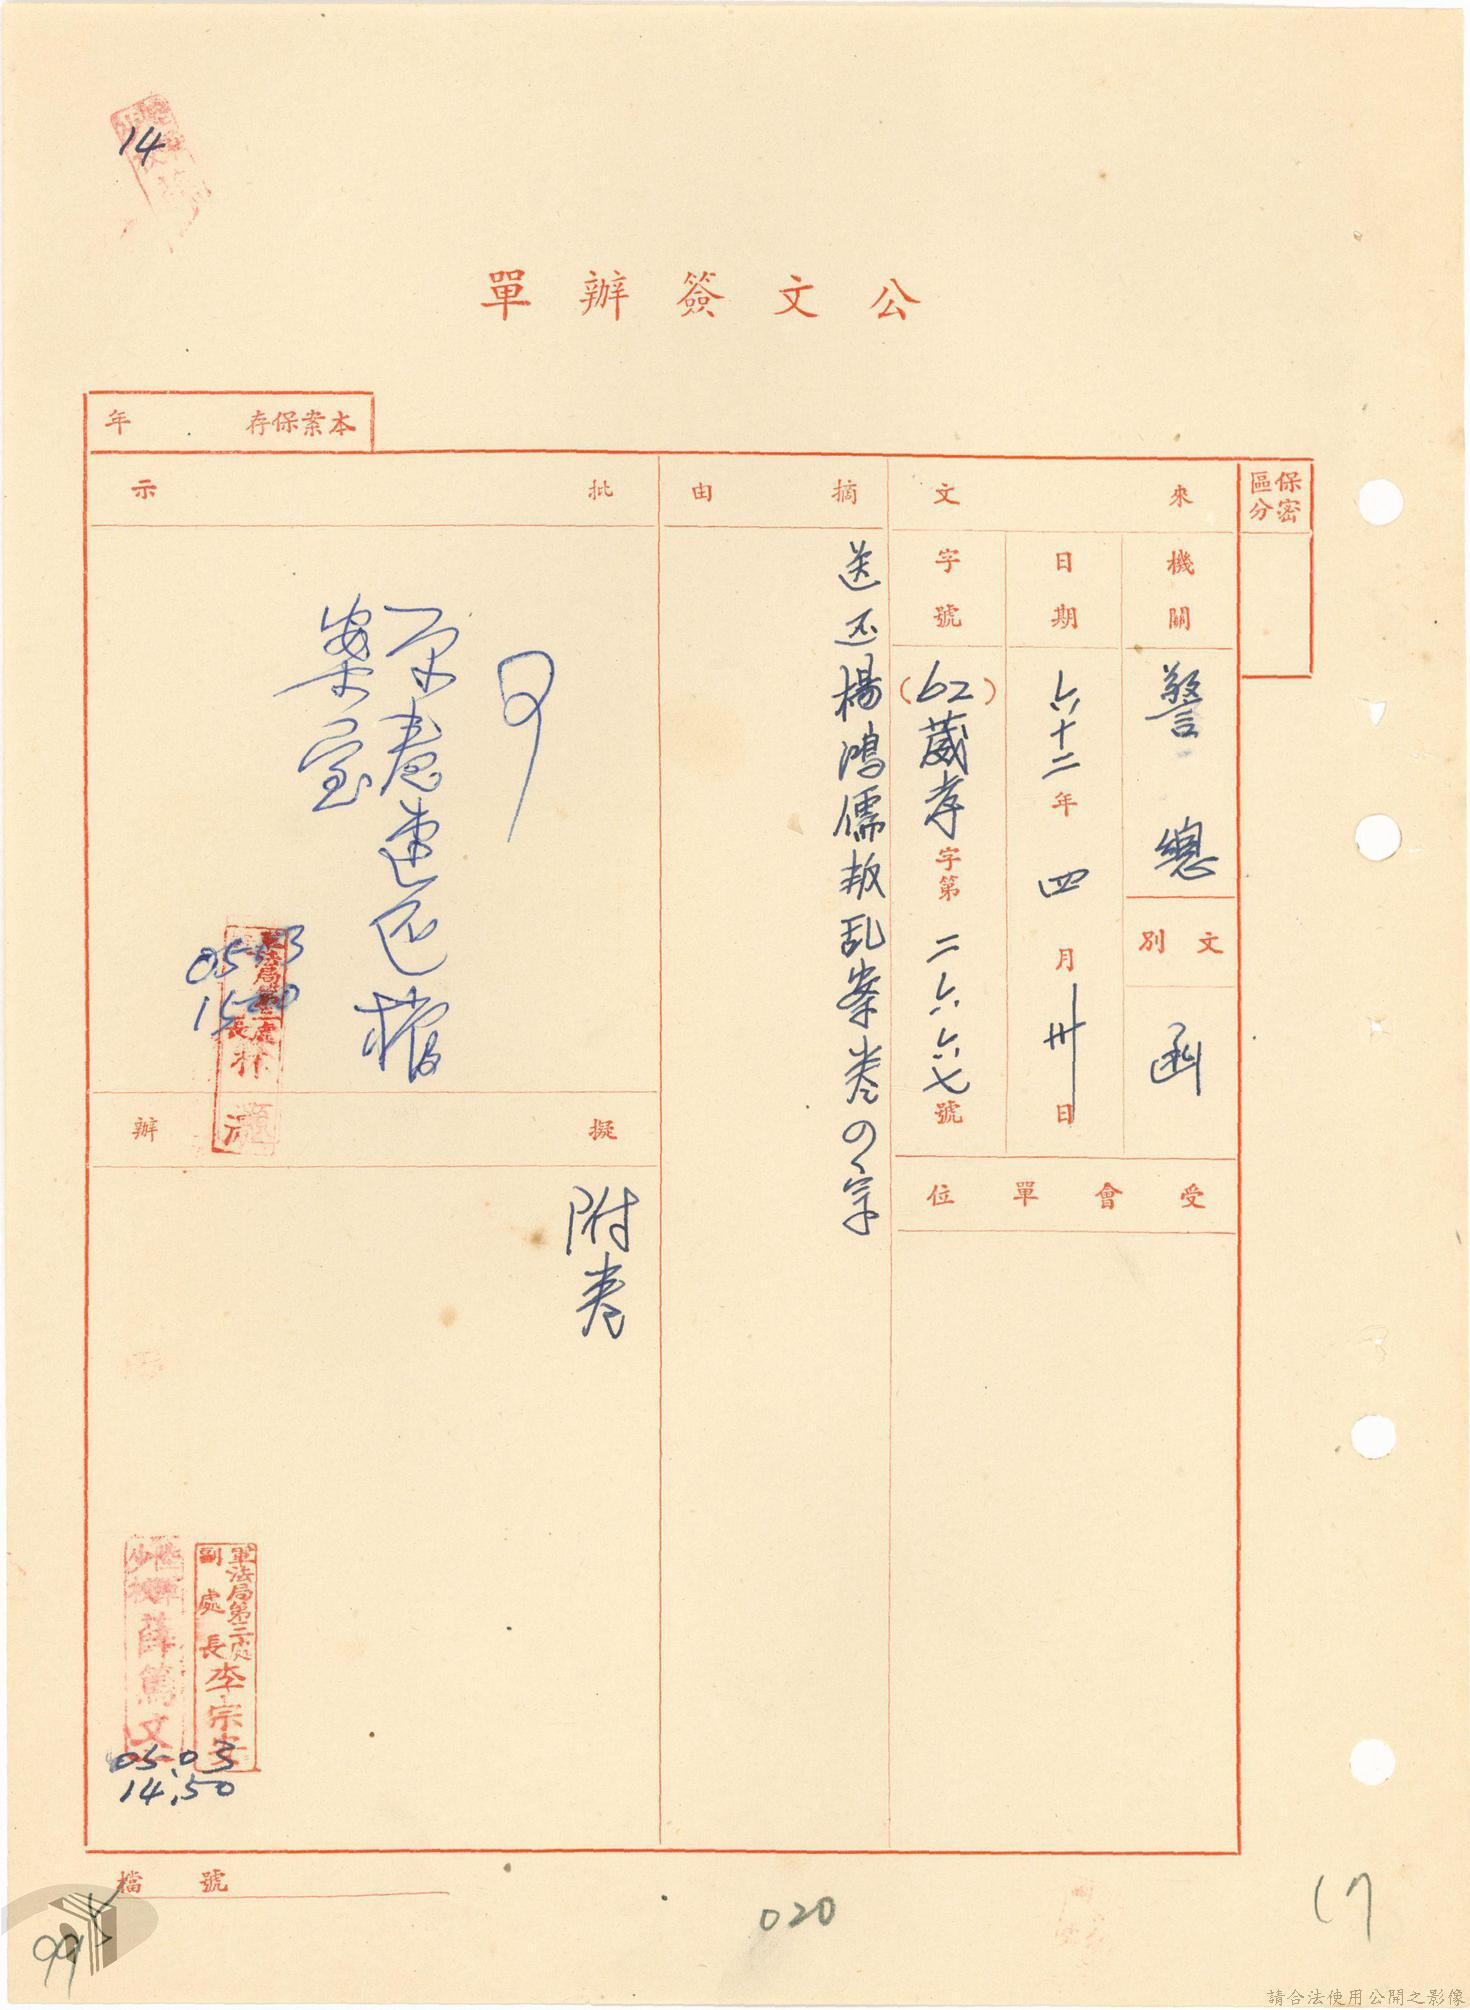 14
公文簽辦單
本案保存 年
保密區分
來文
機關
警總
文別
函
日期
六十二年四月卅日
字號
(62)葳孝字第二六六七號
受會單位
摘由
送还楊鴻儒叛乱案卷の宗
批示
原卷速还檔
案室
軍法局第三處
處長林
05.03
1520
擬辦
附卷
軍法局第三處
副處長李宗
薛篤文
05.03
14.50
檔號
020
17
請合法使用公開之影像